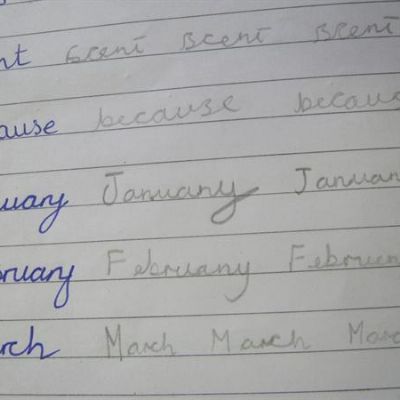 nt scent scent scent
ause because becaus
uary January Januar
ruary February Februar
rch March March Marc